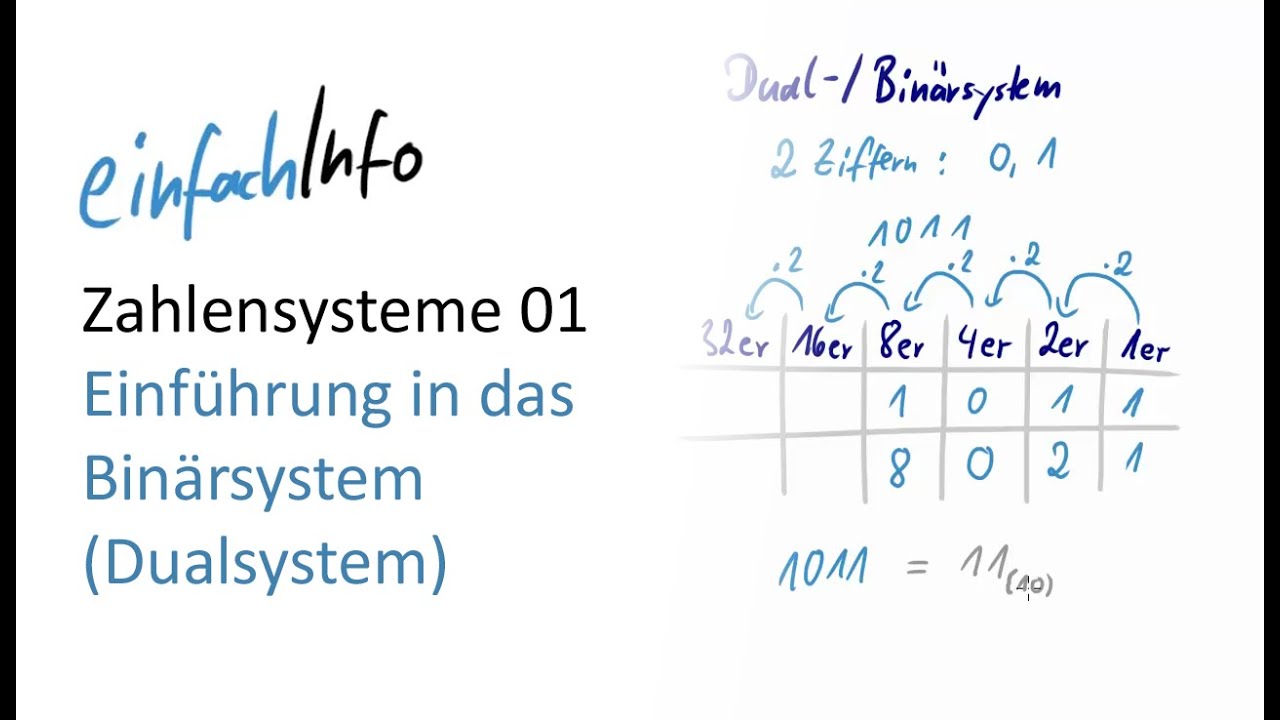 einfachInfo
Zahlensysteme 01
Einführung in das
Binärsystem
(Dualsystem)
Dual-/Binärsystem
2 Ziffern: 0, 1
1011
·2 ·2 ·2 ·2 ·2
32er 16er 8er 4er 2er 1er
1 0 1 1
8 0 2 1
1011 = 11(10)